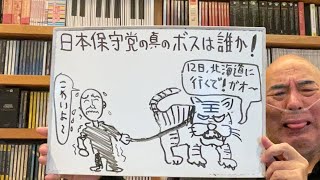 日本保守党の真のボスは誰か!
12日、北海道に
行くぞ!ガオ〜
こわいよ〜